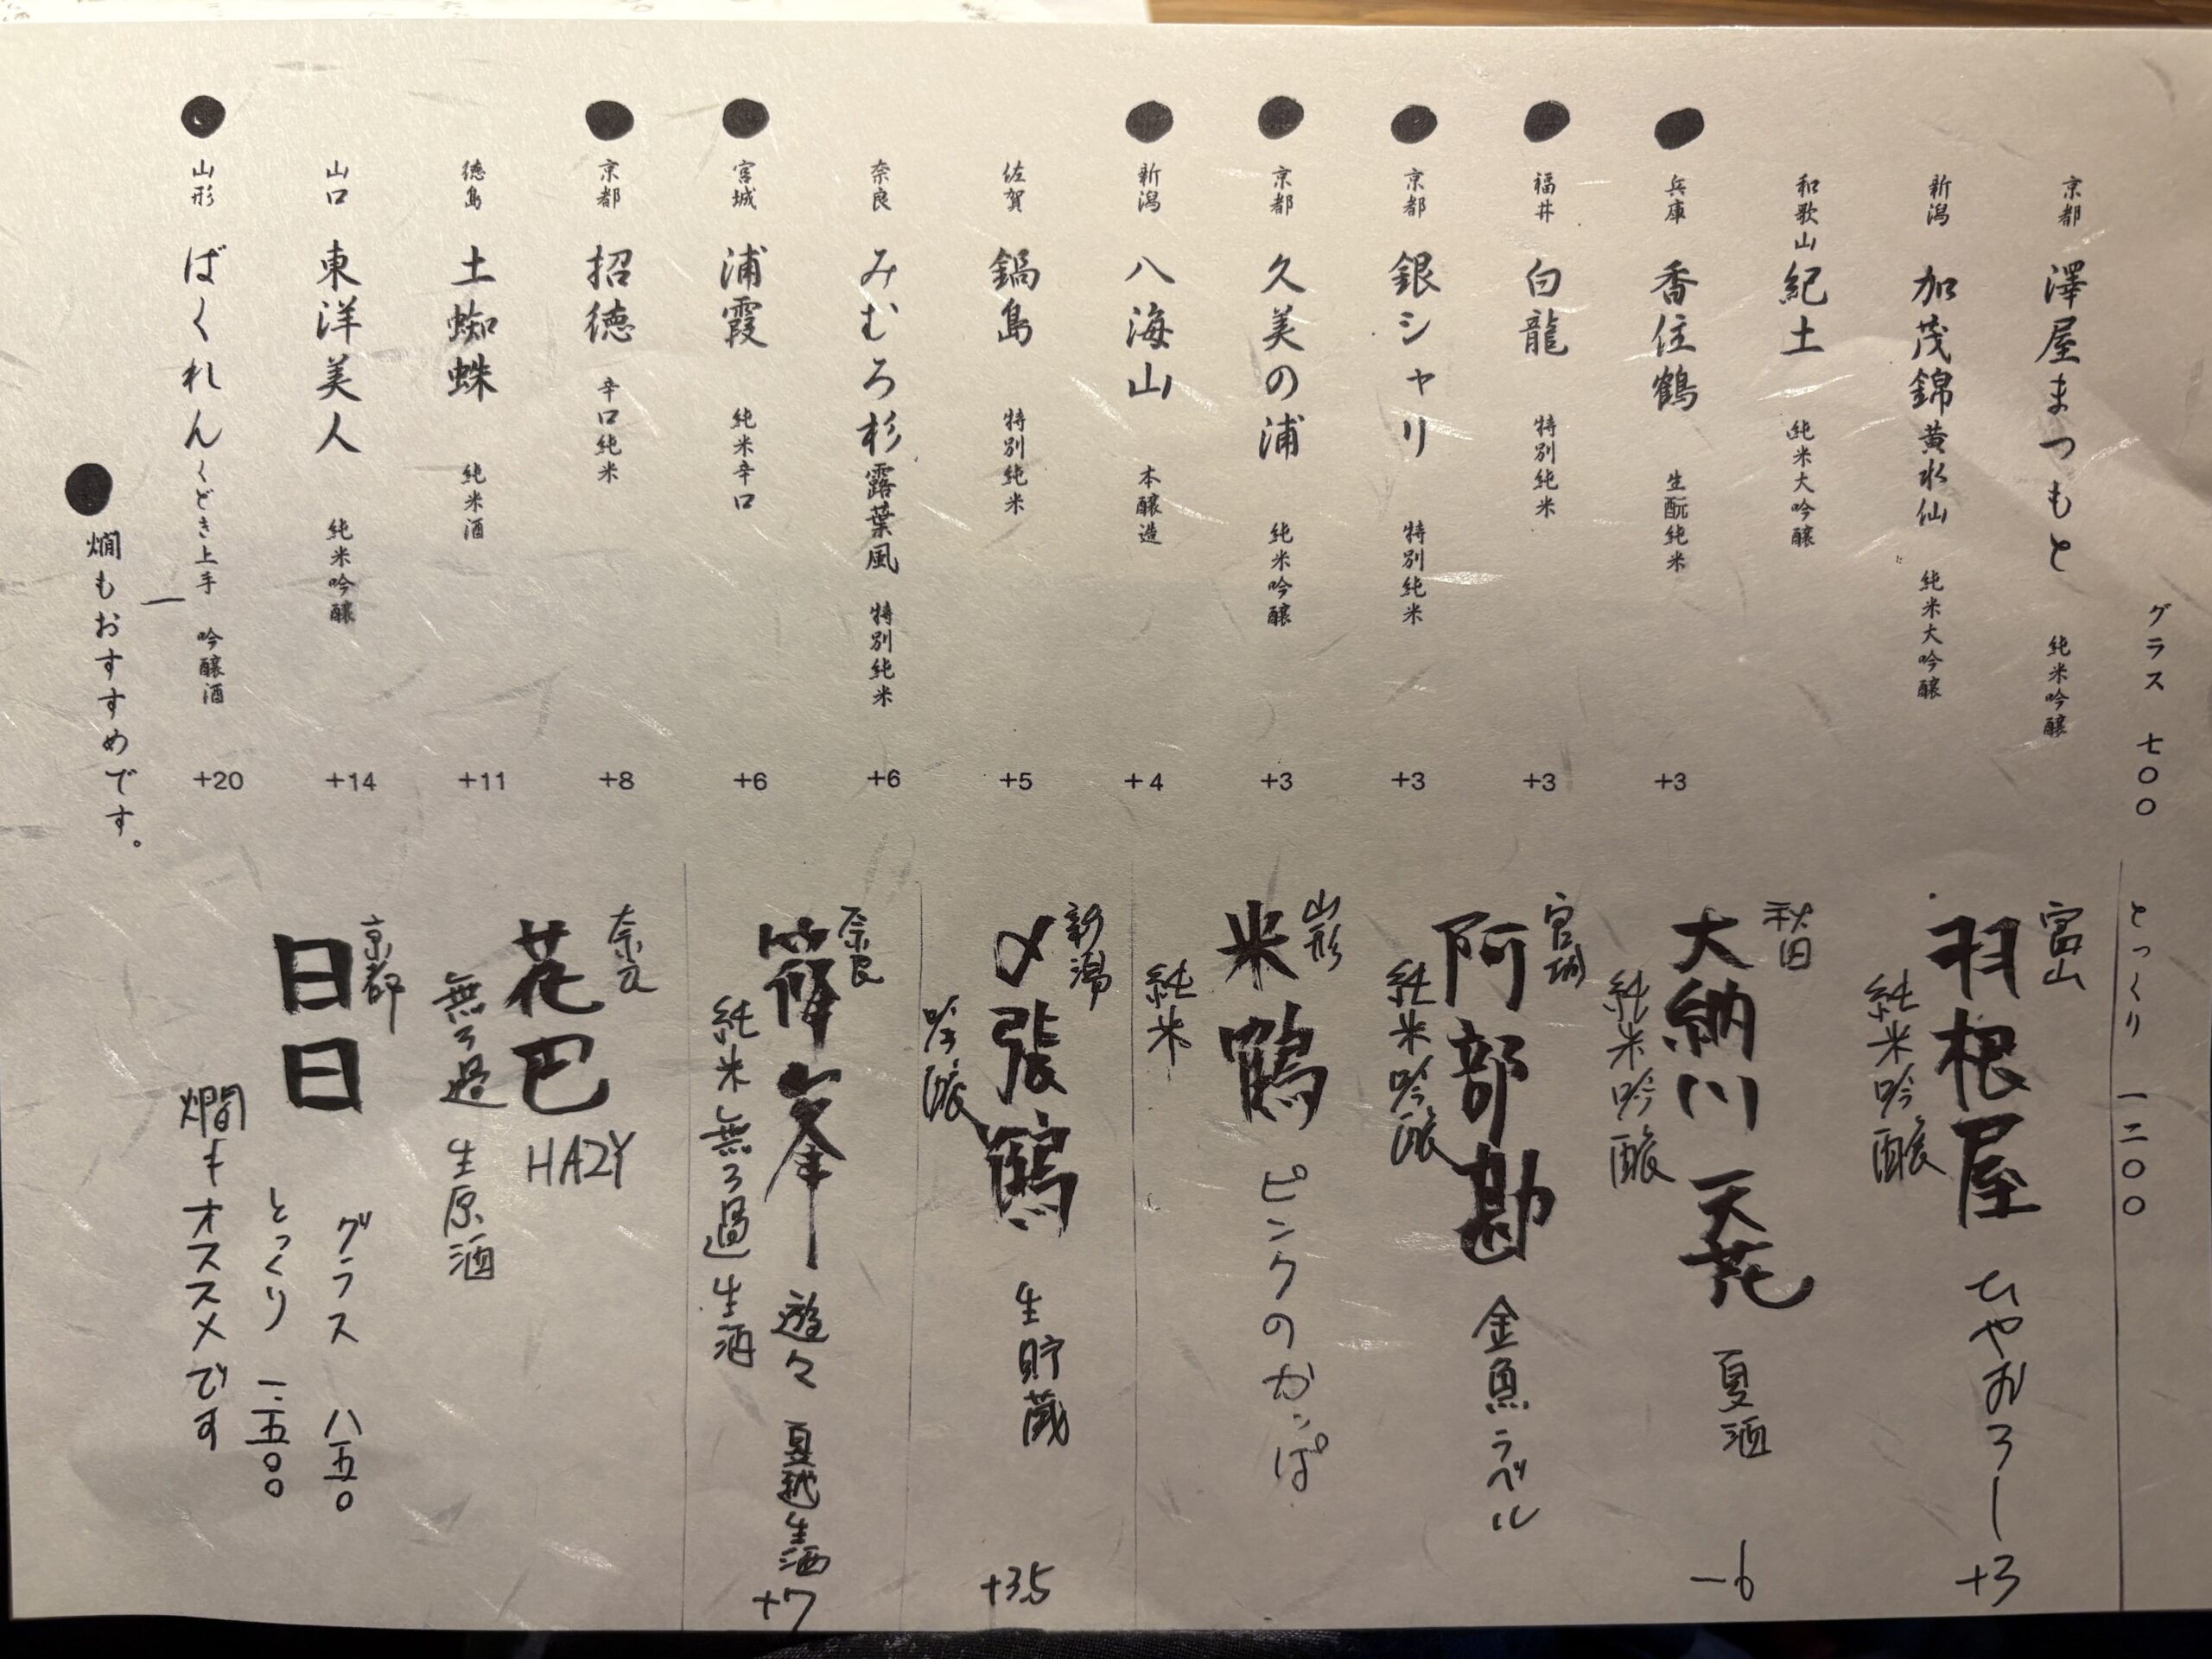 グラス 七〇〇
とっくり 一二〇〇
京都 澤屋まつもと 純米吟醸
新潟 加茂錦 黄水仙 純米大吟醸
和歌山 紀土 純米大吟醸
● 兵庫 香住鶴 生酛純米 +3
● 福井 白龍 特別純米 +3
● 京都 銀シャリ 特別純米 +3
● 京都 久美の浦 純米吟醸 +3
● 新潟 八海山 本醸造 +4
佐賀 鍋島 特別純米 +5
奈良 みむろ杉 露葉風 特別純米 +6
● 宮城 浦霞 純米辛口 +6
● 京都 招徳 辛口純米 +8
徳島 土蜘蛛 純米酒 +11
山口 東洋美人 純米吟醸 +14
● 山形 ばくれん くどき上手 吟醸酒 +20
● 燗もおすすめです。
富山
羽根屋 ひやおろし +3
純米吟醸
秋田
大納川 天花 夏酒 -6
純米吟醸
宮城
阿部勘 金魚ラベル
純米吟醸
山形
米鶴 ピンクのかっぱ
純米
新潟
〆張鶴 生貯蔵 +3.5
吟醸
奈良
篠峯 遊々 夏越生酒 +7
純米 無ろ過生酒
奈良
花巴 HAZY
無ろ過 生原酒
京都
日日
グラス 八五〇
とっくり 一五〇〇
燗もオススメです